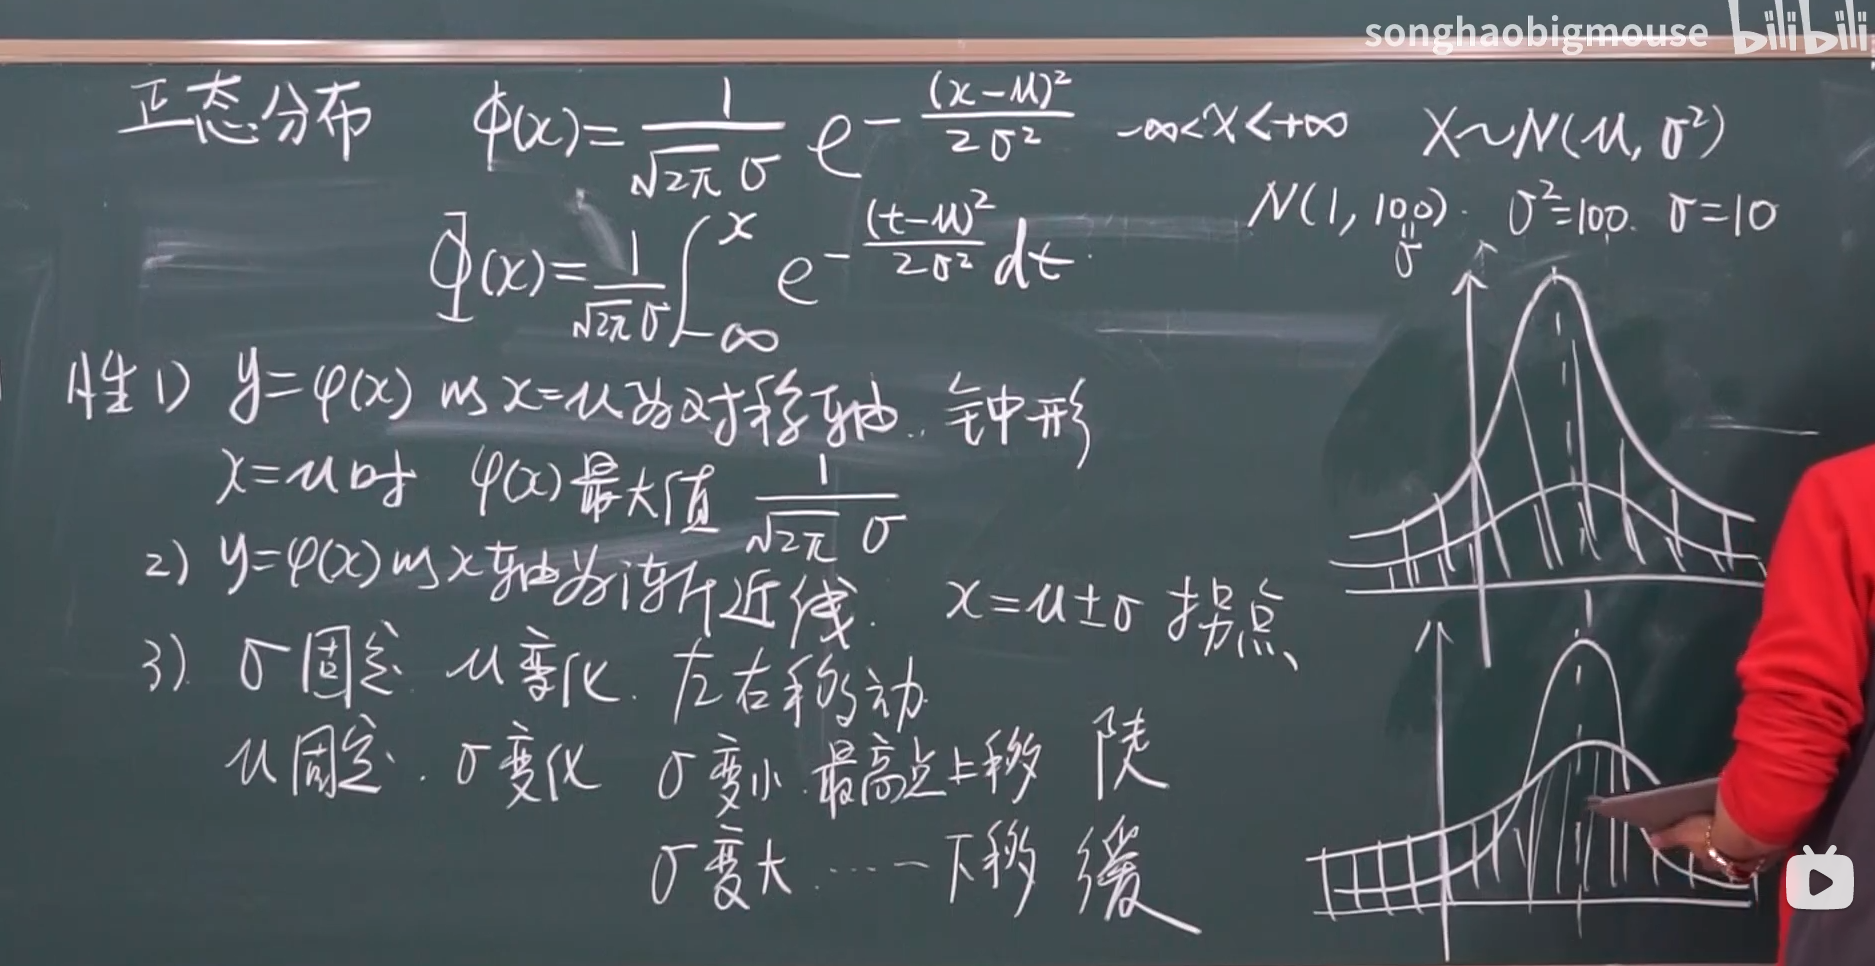 songhaobigmouse bilibili
正态分布 φ(x)=1/(√2π σ) e^{-(x-μ)²/(2σ²)} -∞<x<+∞ X~N(μ, σ²)
N(1, 100). σ²=100. σ=10
σ
Φ(x)=1/(√2π σ) ∫_{-∞}^{x} e^{-(t-μ)²/(2σ²)} dt
性 1) y=φ(x) 以 x=μ 为对称轴. 钟形
x=μ时 φ(x)最大值 1/(√2π σ)
2) y=φ(x)以x轴为渐近线. x=μ±σ 拐点
3). σ固定. μ变化. 左右移动
μ固定. σ变化 σ变小. 最高点上移 陡
σ变大 …… 下移 缓